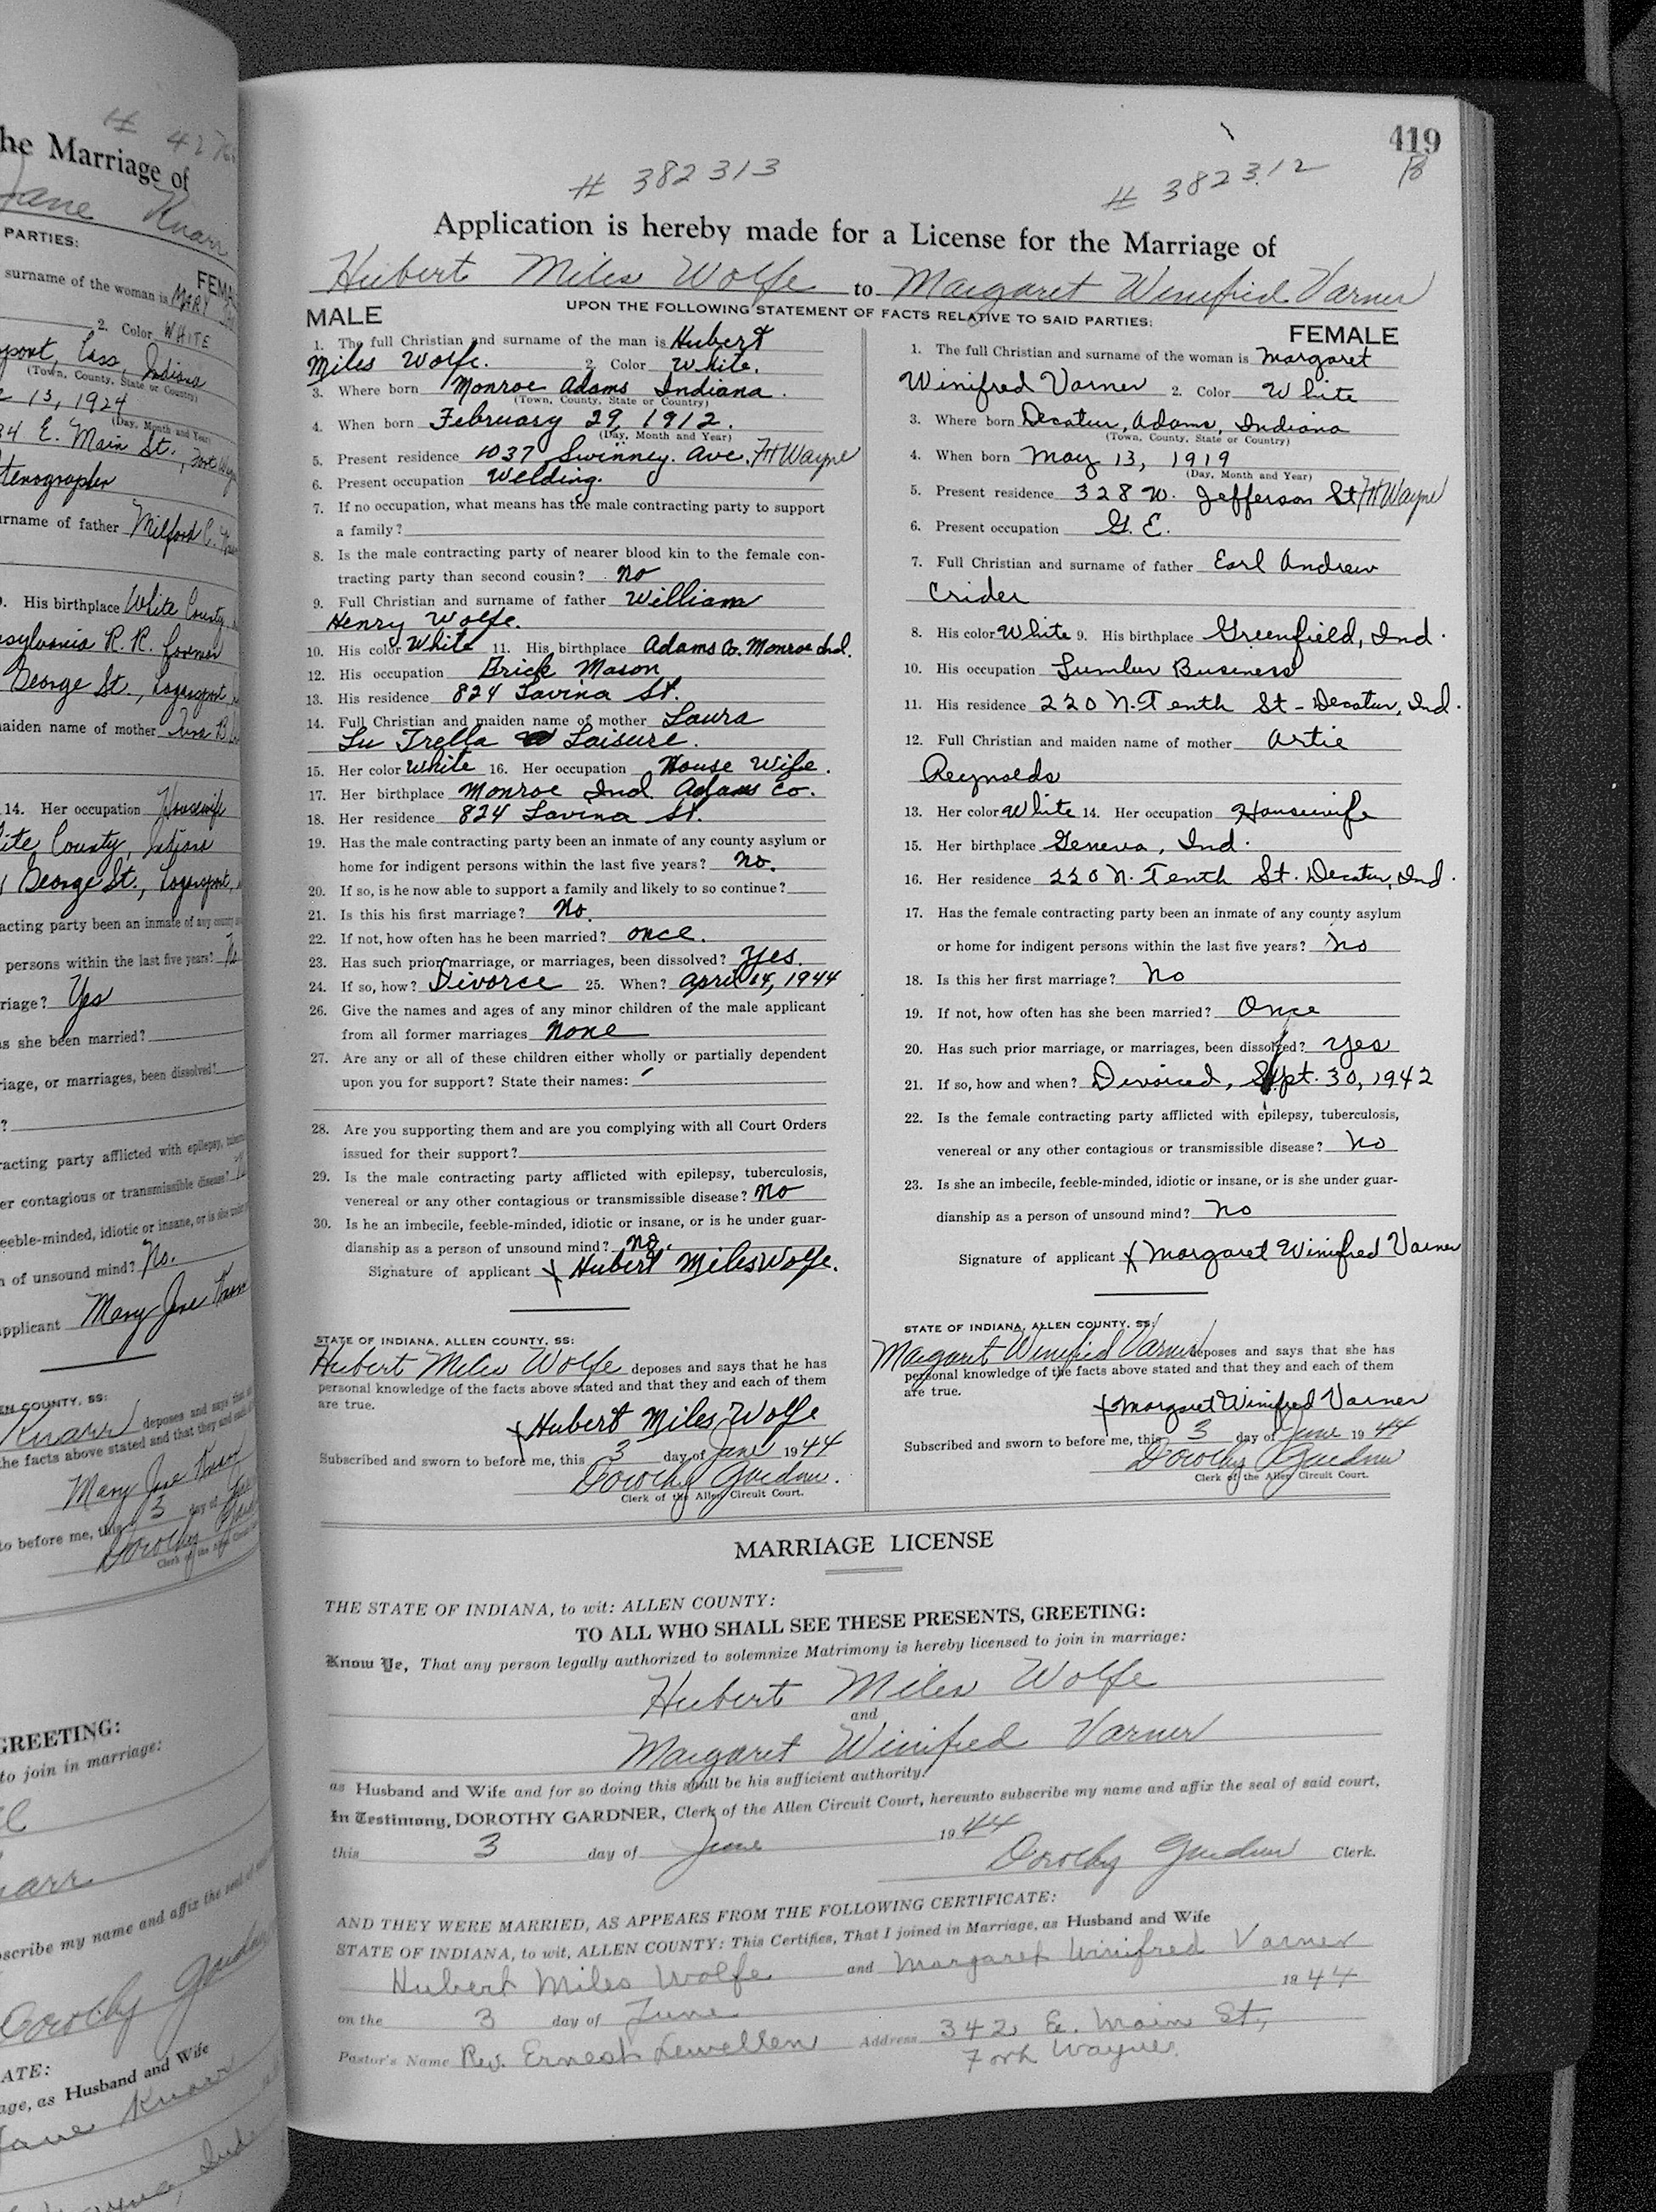 # 427
he Marriage of
Jane Knarr
PARTIES:
FEMA
surname of the woman is MARY
2. Color WHITE
sport, Cass, Indiana
(Town, County, State or Country)
13, 1924
(Day, Month and Year)
34 E. Main St., Fort Wayne
tenographer
urname of father Milford C.
9. His birthplace White County,
nsylvania R. R. foreman
George St., Logansport,
aiden name of mother
14. Her occupation Housewife
ite County, Indiana
George St., Logansport,
acting party been an inmate of any county
persons within the last five years? No
riage? Yes
as she been married?
riage, or marriages, been dissolved?
?
racting party afflicted with epilepsy,
er contagious or transmissible disease?
eeble-minded, idiotic or insane, or is she under
n of unsound mind? No.
pplicant Mary Jane Knarr
EN COUNTY, SS:
Knarr deposes and says that
the facts above stated and that they and each
Mary Jane Knarr
to before me, this 3 day of June
Dorothy Gardner
Clerk of the Allen
GREETING:
to join in marriage:
narr
bscribe my name and affix the seal of
Dorothy Gardner
ATE:
age, as Husband and Wife
Jane Knarr
Wayne, Ind.
419
B
# 382313 # 382312
Application is hereby made for a License for the Marriage of
Hubert Miles Wolfe to Margaret Winifred Varner
UPON THE FOLLOWING STATEMENT OF FACTS RELATIVE TO SAID PARTIES:
MALE
1. The full Christian and surname of the man is Hubert
Miles Wolfe. 2. Color White.
3. Where born Monroe Adams Indiana.
(Town, County, State or Country)
4. When born February 29, 1912.
(Day, Month and Year)
5. Present residence 1037 Swinney. Ave. Ft Wayne
6. Present occupation Welding.
7. If no occupation, what means has the male contracting party to support
a family?
8. Is the male contracting party of nearer blood kin to the female con-
tracting party than second cousin? no
9. Full Christian and surname of father William
Henry Wolfe.
10. His color White 11. His birthplace Adams Co. Monroe Ind.
12. His occupation Brick Mason
13. His residence 824 Lavina St.
14. Full Christian and maiden name of mother Laura
Lu Trella Laisure.
15. Her color White 16. Her occupation House Wife.
17. Her birthplace Monroe Ind. Adams Co.
18. Her residence 824 Lavina St.
19. Has the male contracting party been an inmate of any county asylum or
home for indigent persons within the last five years? No.
20. If so, is he now able to support a family and likely to so continue?
21. Is this his first marriage? No.
22. If not, how often has he been married? once.
23. Has such prior marriage, or marriages, been dissolved? Yes.
24. If so, how? Divorce 25. When? April 14, 1944
26. Give the names and ages of any minor children of the male applicant
from all former marriages None
27. Are any or all of these children either wholly or partially dependent
upon you for support? State their names:
28. Are you supporting them and are you complying with all Court Orders
issued for their support?
29. Is the male contracting party afflicted with epilepsy, tuberculosis,
venereal or any other contagious or transmissible disease? No
30. Is he an imbecile, feeble-minded, idiotic or insane, or is he under guar-
dianship as a person of unsound mind? No.
Signature of applicant x Hubert Miles Wolfe.
STATE OF INDIANA, ALLEN COUNTY, SS:
Hubert Miles Wolfe deposes and says that he has
personal knowledge of the facts above stated and that they and each of them
are true.
x Hubert Miles Wolfe
Subscribed and sworn to before me, this 3 day of June 1944
Dorothy Gardner.
Clerk of the Allen Circuit Court.
FEMALE
1. The full Christian and surname of the woman is Margaret
Winifred Varner 2. Color White
3. Where born Decatur, Adams, Indiana
(Town, County, State or Country)
4. When born May 13, 1919
(Day, Month and Year)
5. Present residence 328 W. Jefferson St Ft Wayne
6. Present occupation G. E.
7. Full Christian and surname of father Earl Andrew
Crider
8. His color White 9. His birthplace Greenfield, Ind.
10. His occupation Lumber Business
11. His residence 220 N. Tenth St - Decatur, Ind.
12. Full Christian and maiden name of mother Artie
Reynolds
13. Her color White 14. Her occupation Housewife
15. Her birthplace Geneva, Ind.
16. Her residence 220 N. Tenth St. Decatur, Ind.
17. Has the female contracting party been an inmate of any county asylum
or home for indigent persons within the last five years? No
18. Is this her first marriage? No
19. If not, how often has she been married? Once
20. Has such prior marriage, or marriages, been dissolved? Yes
21. If so, how and when? Divorced, Sept. 30, 1942
22. Is the female contracting party afflicted with epilepsy, tuberculosis,
venereal or any other contagious or transmissible disease? No
23. Is she an imbecile, feeble-minded, idiotic or insane, or is she under guar-
dianship as a person of unsound mind? No
Signature of applicant x Margaret Winifred Varner
STATE OF INDIANA, ALLEN COUNTY, SS:
Margaret Winifred Varner deposes and says that she has
personal knowledge of the facts above stated and that they and each of them
are true.
x Margaret Winifred Varner
Subscribed and sworn to before me, this 3 day of June 1944
Dorothy Gardner
Clerk of the Allen Circuit Court.
MARRIAGE LICENSE
THE STATE OF INDIANA, to wit: ALLEN COUNTY:
TO ALL WHO SHALL SEE THESE PRESENTS, GREETING:
Know Ye, That any person legally authorized to solemnize Matrimony is hereby licensed to join in marriage:
Hubert Miles Wolfe
and
Margaret Winifred Varner
as Husband and Wife and for so doing this shall be his sufficient authority.
In Testimony, DOROTHY GARDNER, Clerk of the Allen Circuit Court, hereunto subscribe my name and affix the seal of said court,
this 3 day of June 1944
Dorothy Gardner Clerk.
AND THEY WERE MARRIED, AS APPEARS FROM THE FOLLOWING CERTIFICATE:
STATE OF INDIANA, to wit, ALLEN COUNTY: This Certifies, That I joined in Marriage, as Husband and Wife
Hubert Miles Wolfe and Margaret Winifred Varner
on the 3 day of June 1944
Pastor's Name Rev. Ernest Lewellen Address 342 E. Main St,
Fort Wayne.